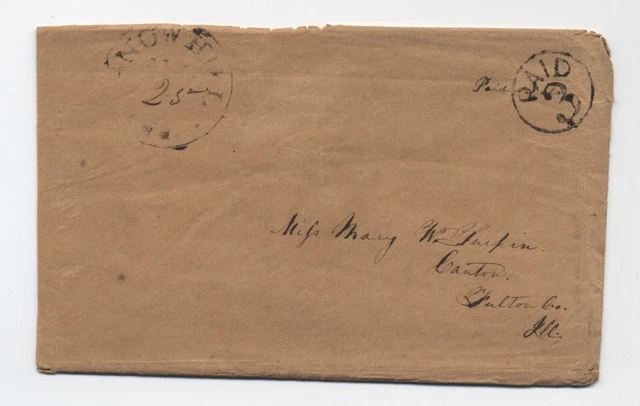 SNOW HILL
25
Paid
PAID
3
Miss Mary W. Turpin.
Canton.
Fulton Co.
Ills,